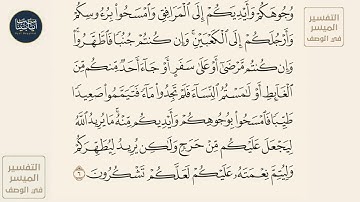 وُجُوهَكُمْ وَأَيْدِيَكُمْ إِلَى ٱلْمَرَافِقِ وَٱمْسَحُوا۟ بِرُءُوسِكُمْ
وَأَرْجُلَكُمْ إِلَى ٱلْكَعْبَيْنِ ۚ وَإِن كُنتُمْ جُنُبًا فَٱطَّهَّرُوا۟ ۚ
وَإِن كُنتُم مَّرْضَىٰٓ أَوْ عَلَىٰ سَفَرٍ أَوْ جَآءَ أَحَدٌ مِّنكُم مِّنَ
ٱلْغَآئِطِ أَوْ لَـٰمَسْتُمُ ٱلنِّسَآءَ فَلَمْ تَجِدُوا۟ مَآءً فَتَيَمَّمُوا۟ صَعِيدًا
طَيِّبًا فَٱمْسَحُوا۟ بِوُجُوهِكُمْ وَأَيْدِيكُم مِّنْهُ ۚ مَا يُرِيدُ ٱللَّهُ
لِيَجْعَلَ عَلَيْكُم مِّنْ حَرَجٍ وَلَـٰكِن يُرِيدُ لِيُطَهِّرَكُمْ
وَلِيُتِمَّ نِعْمَتَهُۥ عَلَيْكُمْ لَعَلَّكُمْ تَشْكُرُونَ ٦
التفسير
الميسر
في الوصف
التفسير
الميسر
في الوصف